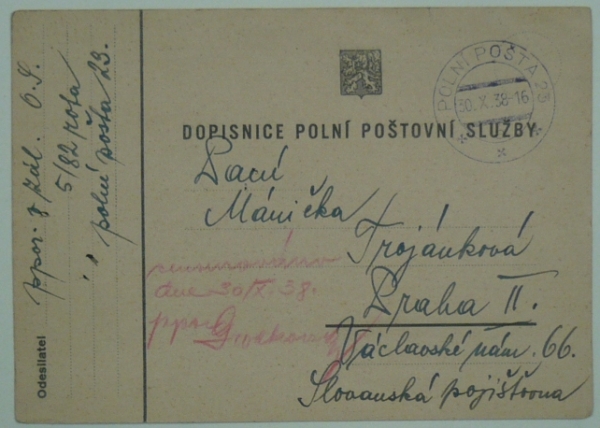 Odesílatel
ppor. v zál. O.S.
5/82 rota
polní pošta 23.
POLNÍ POŠTA 23
30.X.38-16
DOPISNICE POLNÍ POŠTOVNÍ SLUŽBY
Paní
Mánička
Trojánková
Praha II.
Václavské nám. 66.
Slovanská pojišťovna
dne 30/X. 38.
ppor.